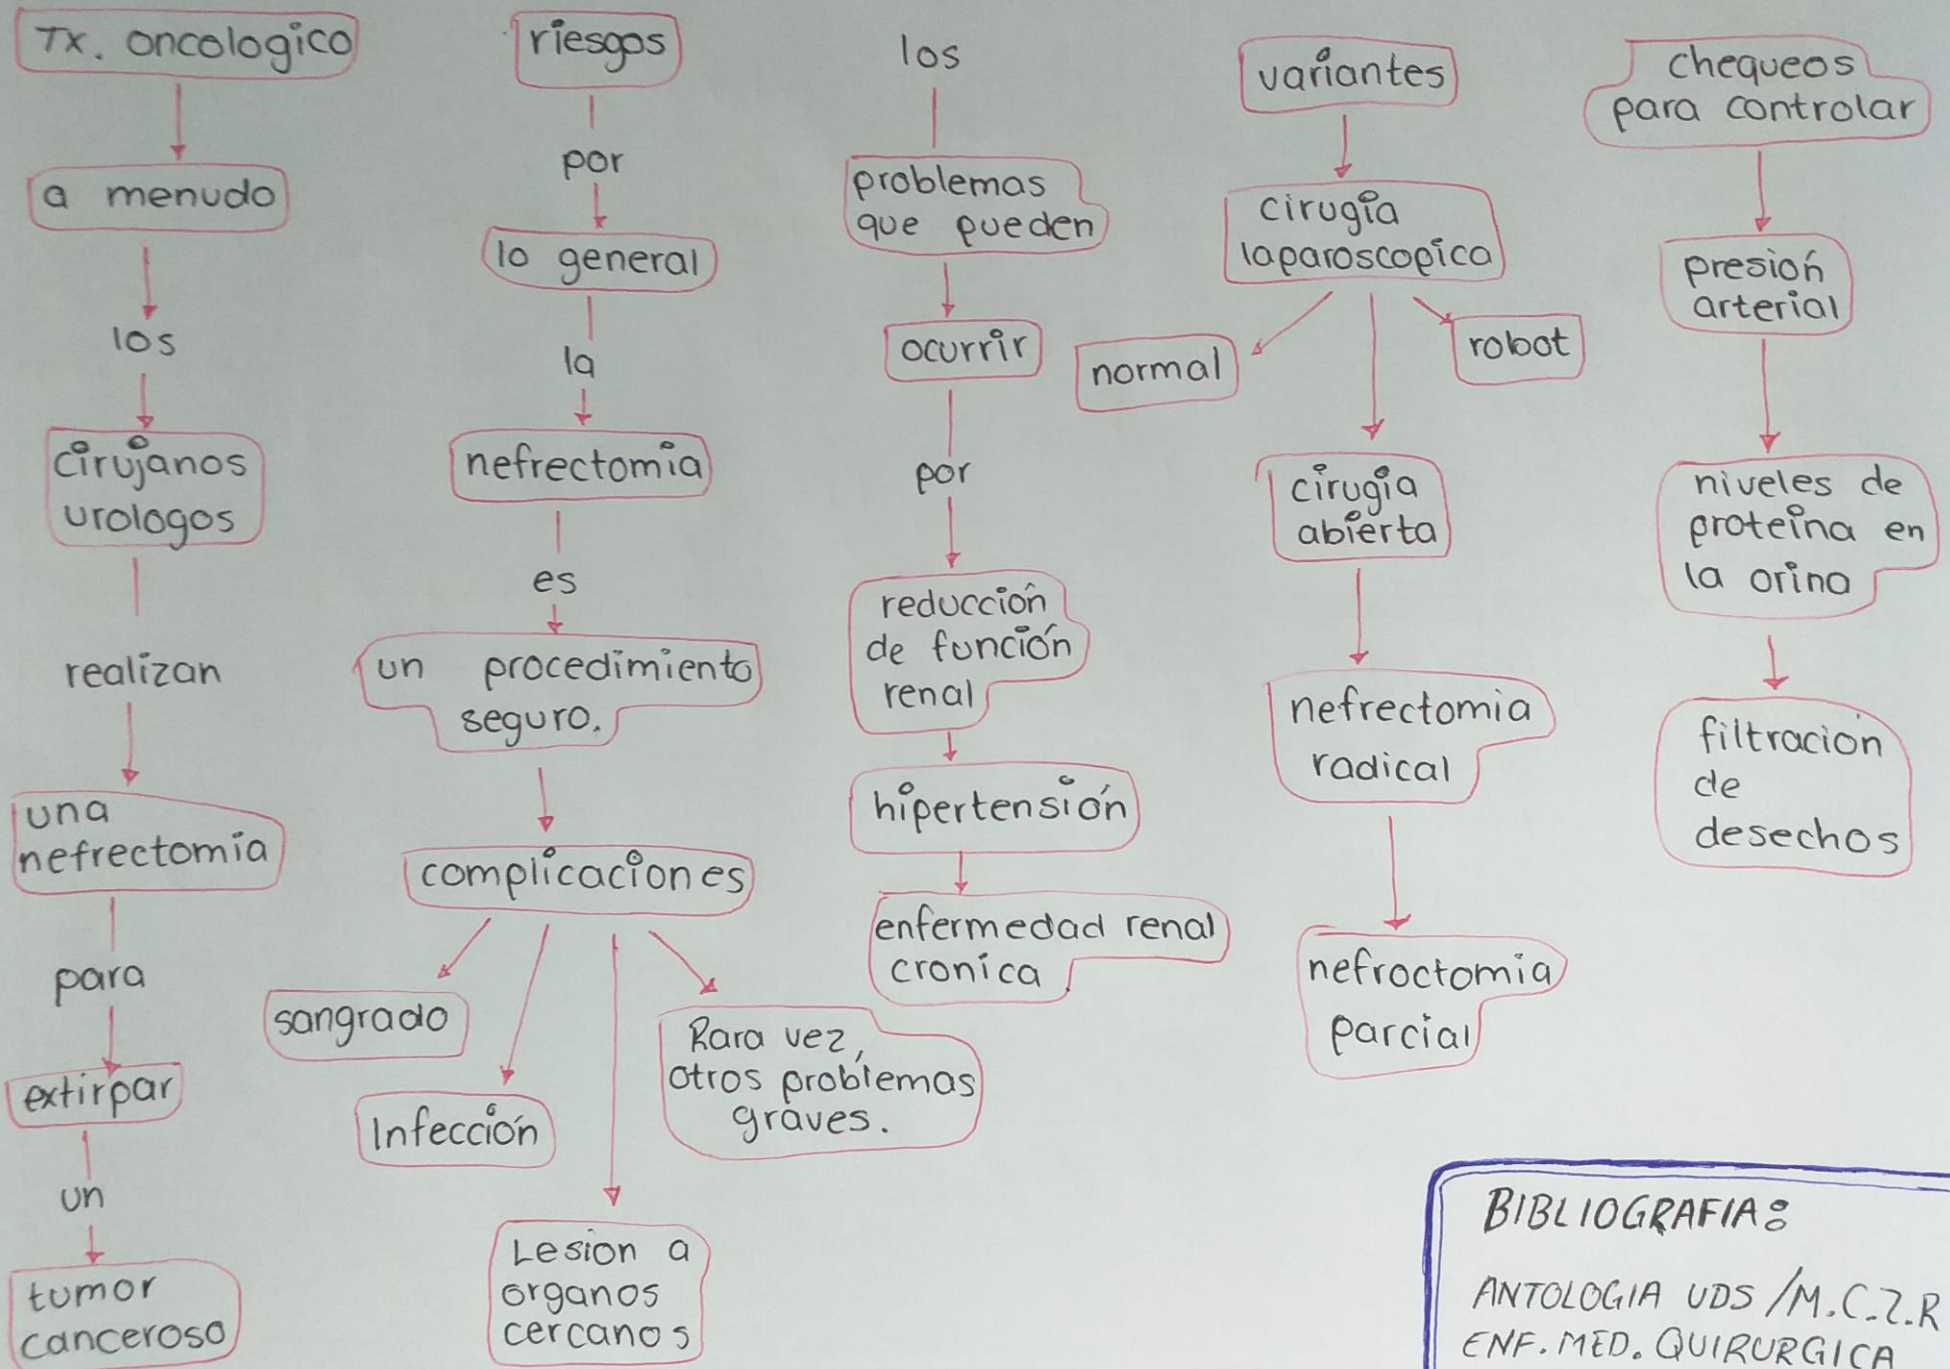 Tx. oncologico
a menudo
los
cirujanos
urologos
realizan
una
nefrectomia
para
extirpar
un
tumor
canceroso
riesgos
por
lo general
la
nefrectomia
es
un procedimiento
seguro.
complicaciones
sangrado
Infección
Lesion a
organos
cercanos
Rara vez,
otros problemas
graves.
los
problemas
que pueden
ocurrir
por
reducción
de función
renal
hipertensión
enfermedad renal
cronica
variantes
cirugía
laparoscopica
normal
robot
cirugía
abierta
nefrectomia
radical
nefroctomia
parcial
chequeos
para controlar
presión
arterial
niveles de
proteína en
la orina
filtración
de
desechos
BIBLIOGRAFIA:
ANTOLOGIA UDS /M.C.Z.R
ENF. MED. QUIRURGICA